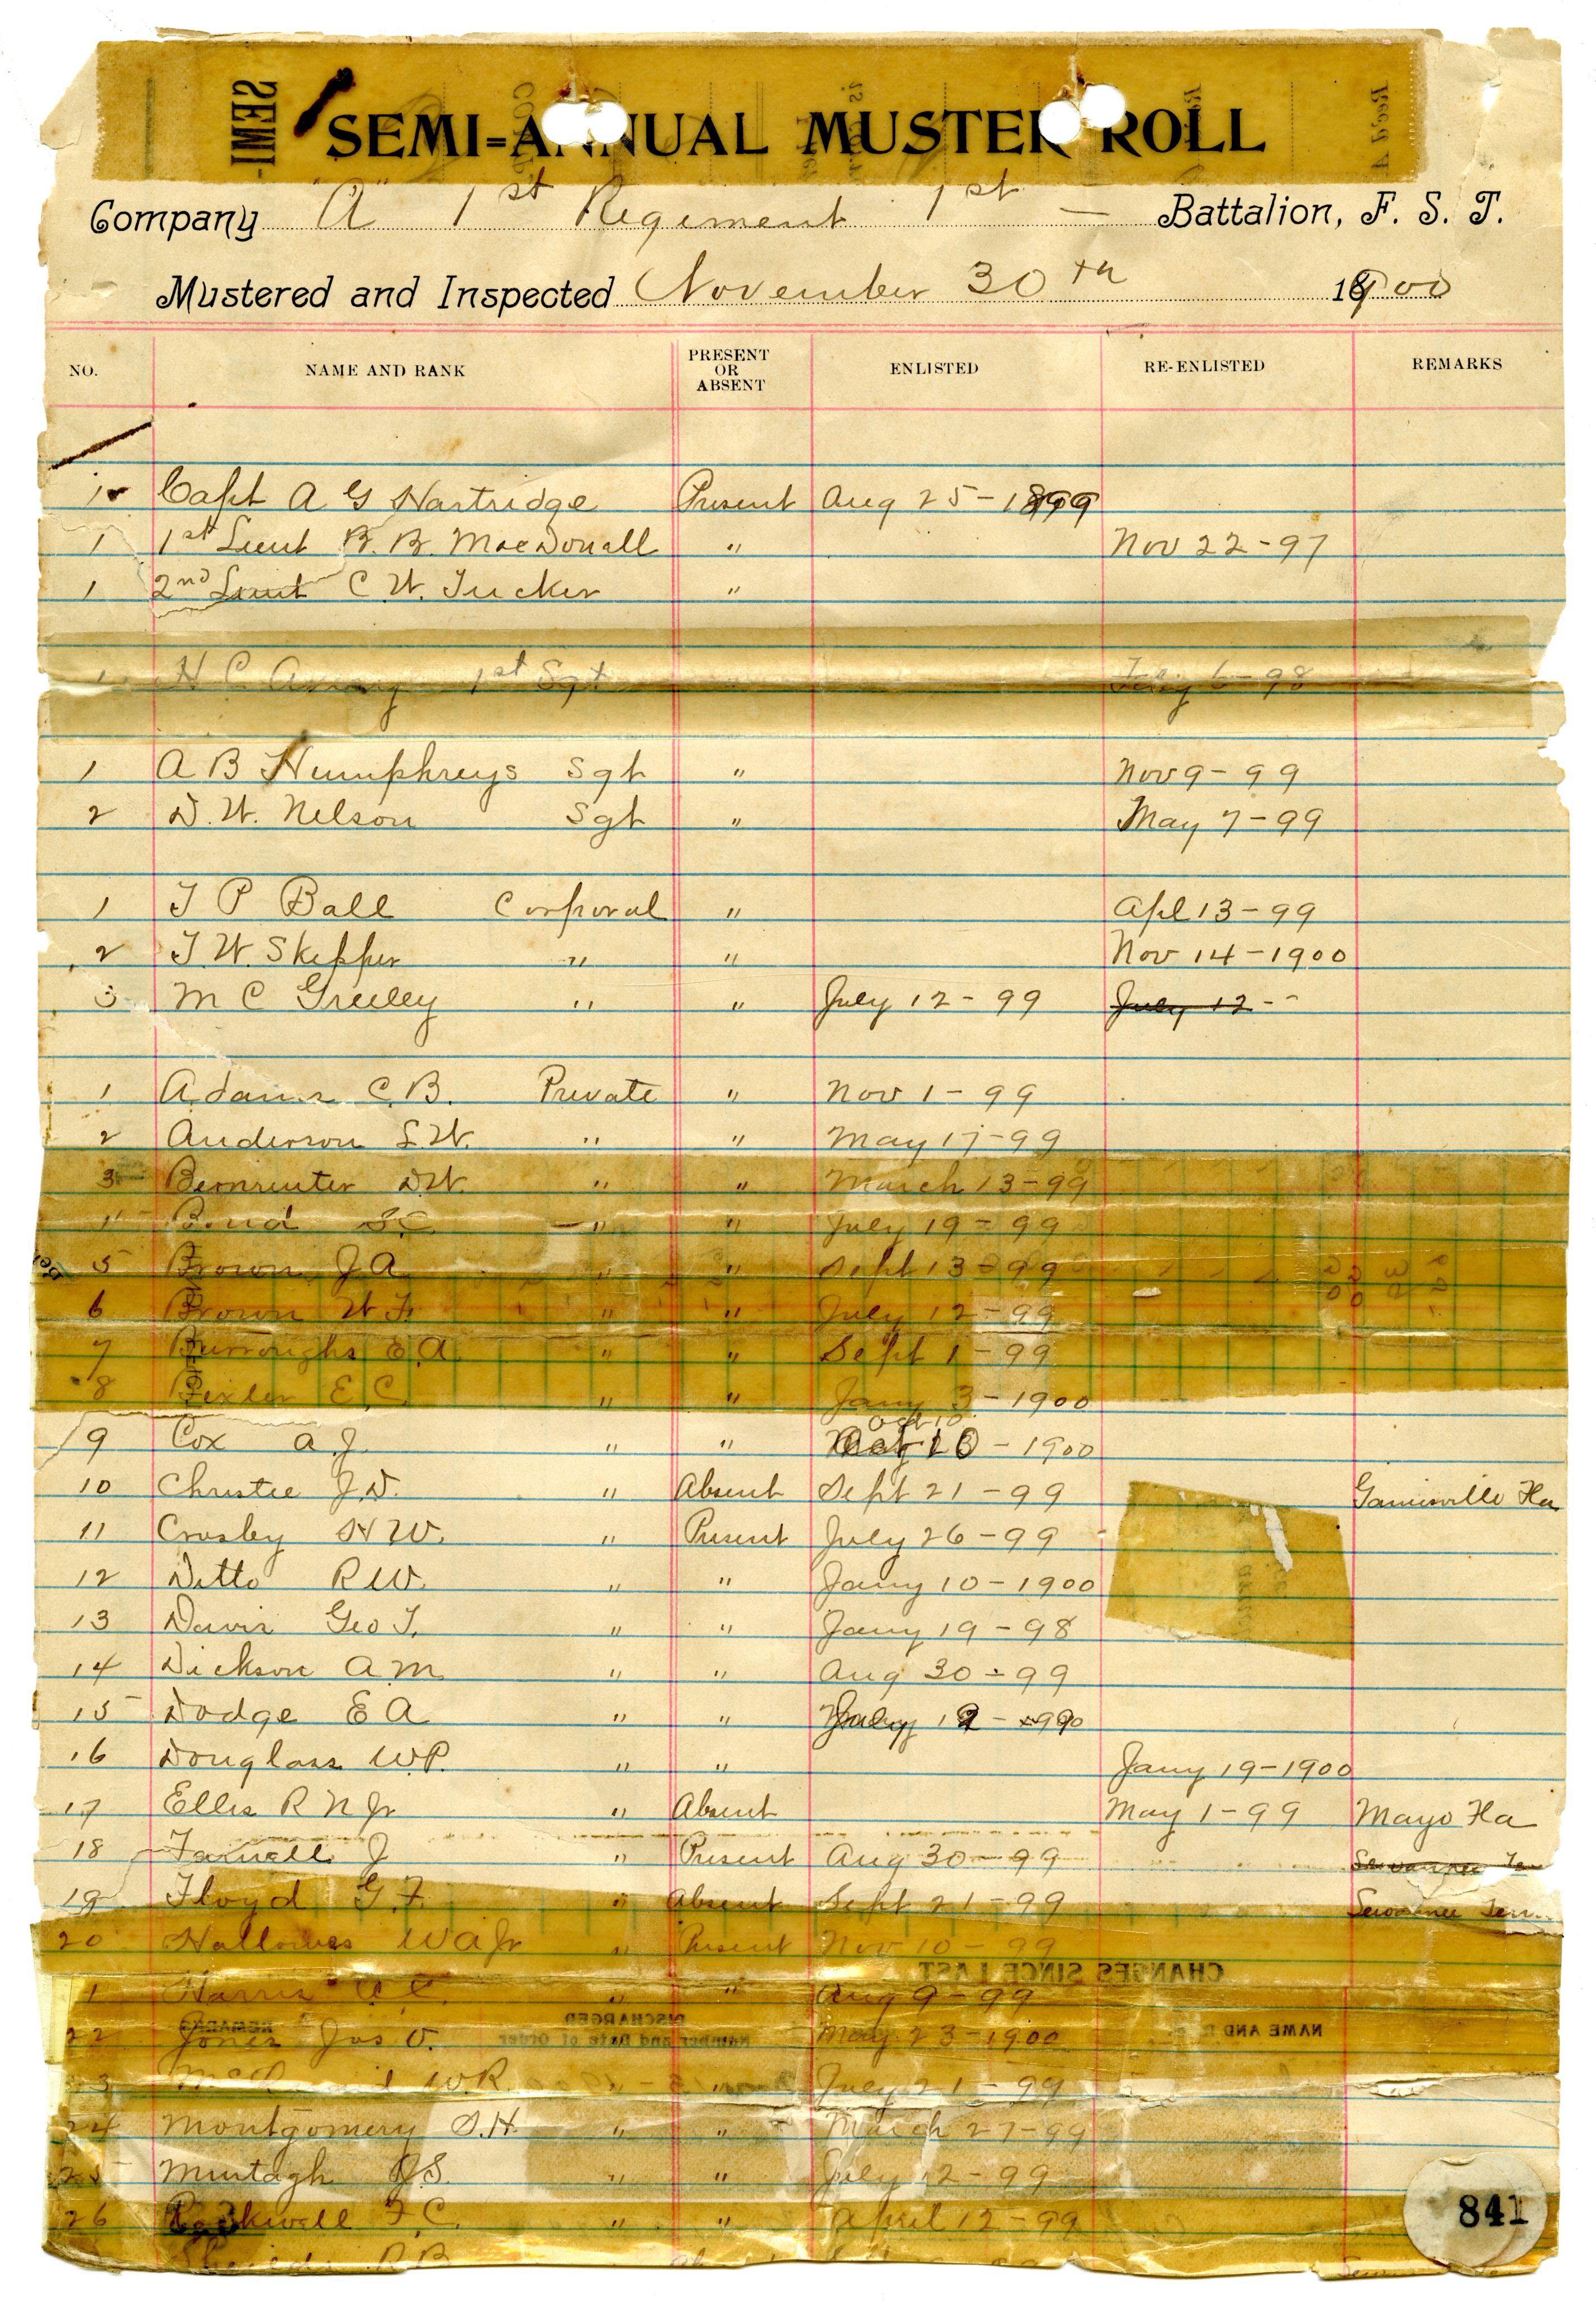 SEMI=ANNUAL MUSTER ROLL
Company "A" 1st Regiment 1st — Battalion, F. S. T.
Mustered and Inspected November 30th 1900
NO. NAME AND RANK PRESENT OR ABSENT ENLISTED RE-ENLISTED REMARKS
1 Capt A G Hartridge Present Aug 25-1899
1 1st Lieut B. B. MacDonall " Nov 22-97
1 2nd Lieut C. W. Tucker "
1 H C Avery 1st Sgt 6-98
1 A B Humphreys Sgt " Nov 9-99
2 D. W. Nelson Sgt " May 7-99
1 T P Ball Corporal " Apl 13-99
2 T. W. Skipper " " Nov 14-1900
3 M C Greeley " " July 12-99 July 12--
1 Adams C. B. Private " Nov 1-99
2 Anderson L. W. " " May 17-99
3 Bernreuter D. W. " " March 13-99
Bond S C " " July 19-99
5 Brown J A " " Sept 13-99
6 Brown W. F. " " July 12-99
7 Burroughs E. A. " " Sept 1-99
8 Bixler E. C. " " Jany 3-1900
9 Cox A. J. " " Oct 10 -1900
10 Christie J. D. " Absent Sept 21-99 Gainisville Fla
11 Crosby H W. " Present July 26-99
12 Ditto R W. " " Jany 10-1900
13 Davis Geo T. " " Jany 19-98
14 Dickson A M " " Aug 30-99
15 Dodge E A " "
16 Douglass W. P. " " Jany 19-1900
17 Ellis R N Jr " Absent May 1-99 Mayo Fla
18 Farnell J " Present Aug 30-99 Sewannee Ten
19 Floyd G. F. " Absent Sept 21-99 Sewannee Tenn
20 Hallowes W A Jr " Present Nov 10-99
CHANGES SINCE LAST
1 Harris " " Aug 9-99
REMARKS DISCHARGED Number and Date of Order NAME AND
22 Jones Jas V. " " May 23-1900
3 W. R. " " July 21-99
24 Montgomery S. H. " " March 27-99
25 Murtagh J. S. " " July 12-99
26 Rockwell F. C. " " April 12-99
R B
841